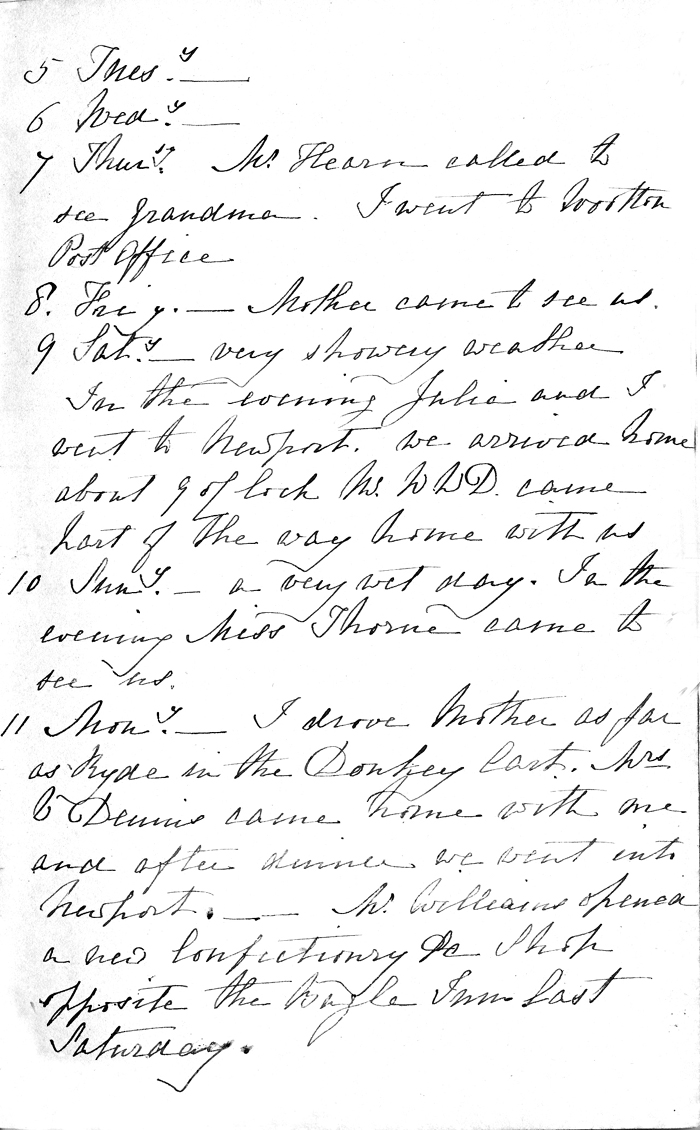 5 Tues.y —
6 Wed.y —
7 Thursy. Mr. Hearn called to
see grandma. I went to Wootton
Post Office
8. Friy. — Mother came to see us.
9 Sat.y — very showery weather
In the evening Julia and I
went to Newport. we arrived home
about 9 o'clock Mr. W W D. came
part of the way home with us
10 Suny. — a very wet day. In the
evening Miss Thorne came to
see us.
11 Mony. — I drove Mother as far
as Ryde in the Donkey Cart. Mrs
Dennis came home with me
and after dinner we went into
Newport. — Mr. Williams opened
a new Confectionry &c Shop
opposite the Bugle Inn last
Saturday.